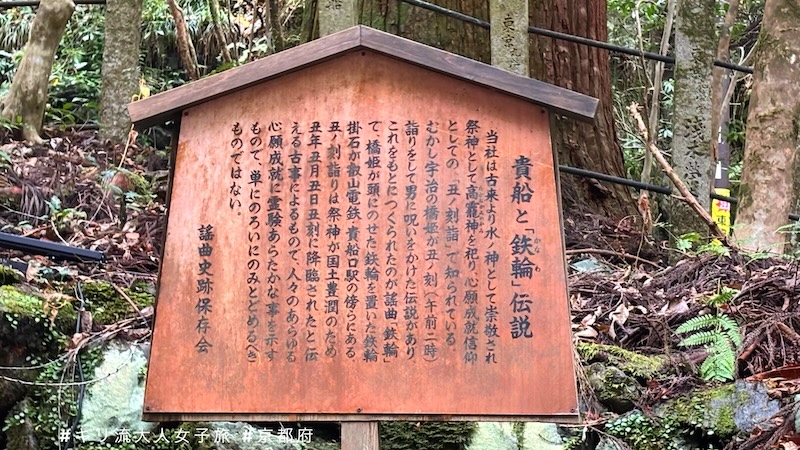 貴船と「鉄輪」伝説
かなわ
当社は古来より水ノ神として崇敬され
祭神として高龗神を祀り、心願成就信仰
としての「丑ノ刻詣」で知られている。
むかし宇治の橋姫が丑ノ刻(午前二時)
詣りをして男に呪いをかけた伝説があり
これをもとにつくられたのが謡曲「鉄輪」
で、橋姫が頭にのせた鉄輪を置いた鉄輪
掛石が叡山電鉄・貴船口駅の傍らにある。
丑ノ刻詣りは祭神が国土豊潤のため
丑年丑月丑日丑刻に降臨されたと伝
える古事によるもので、人々のあらゆる
心願成就に霊験あらたかな事を示す
もので、単にのろいにのみとどめるべき
ものではない。
謡曲史跡保存会
#キリ流大人女子旅 #京都府